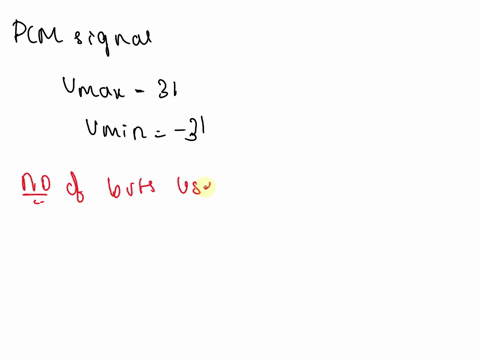 PCM signal
Vmax - 31
Vmin = -31
no of bits us